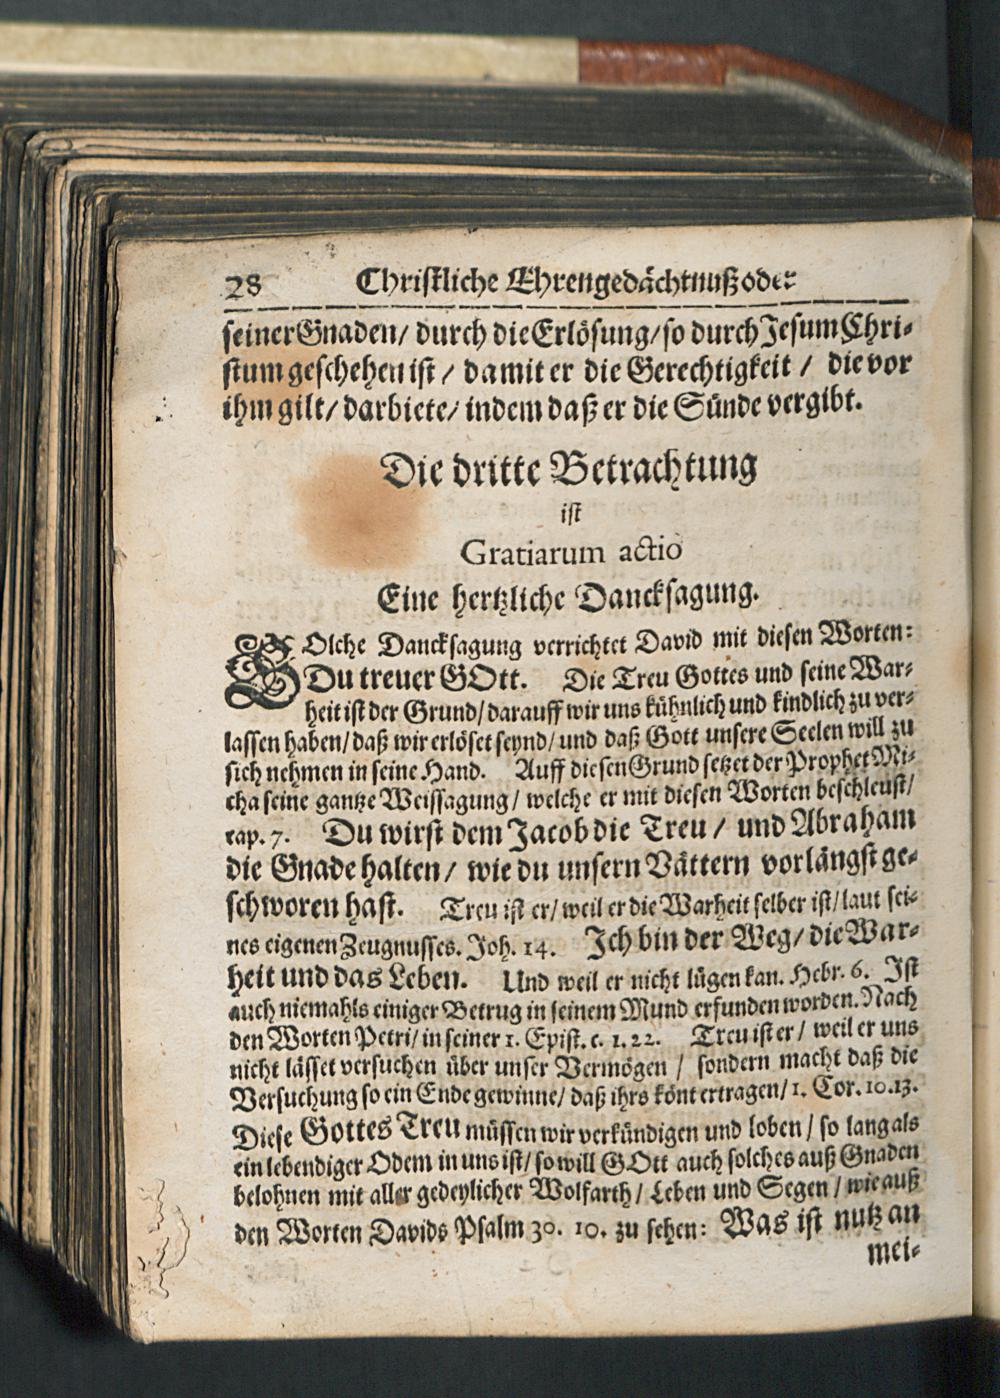 28 Christliche Ehrengedächtnuß oder
seiner Gnaden/ durch die Erlösung/ so durch Jesum Chri-
stum geschehen ist / damit er die Gerechtigkeit / die vor
ihm gilt/ darbiete/ indem daß er die Sünde vergibt.
Die dritte Betrachtung
ist
Gratiarum actio
Eine hertzliche Dancksagung.
SOlche Dancksagung verrichtet David mit diesen Worten:
Du treuer GOtt. Die Treu Gottes und seine War-
heit ist der Grund/ darauff wir uns kühnlich und kindlich zu ver-
lassen haben/ daß wir erlöset seynd/ und daß Gott unsere Seelen will zu
sich nehmen in seine Hand. Auff diesen Grund setzet der Prophet Mi-
cha seine gantze Weissagung / welche er mit diesen Worten beschleust/
cap. 7. Du wirst dem Jacob die Treu / und Abraham
die Gnade halten / wie du unsern Vättern vorlängst ge-
schworen hast. Treu ist er/ weil er die Warheit selber ist/ laut sei-
nes eigenen Zeugnusses. Joh. 14. Ich bin der Weg/ die War-
heit und das Leben. Und weil er nicht lügen kan. Hebr. 6. Ist
auch niemahls einiger Betrug in seinem Mund erfunden worden. Nach
den Worten Petri/ in seiner 1. Epist. c. 1. 22. Treu ist er / weil er uns
nicht lässet versuchen über unser Vermögen / sondern macht daß die
Versuchung so ein Ende gewinne/ daß ihrs könt ertragen/ 1. Cor. 10.13.
Diese Gottes Treu müssen wir verkündigen und loben / so lang als
ein lebendiger Odem in uns ist/ so will GOtt auch solches auß Gnaden
belohnen mit aller gedeylicher Wolfarth / Leben und Segen / wie auß
den Worten Davids Psalm 30. 10. zu sehen: Was ist nutz an
mei-